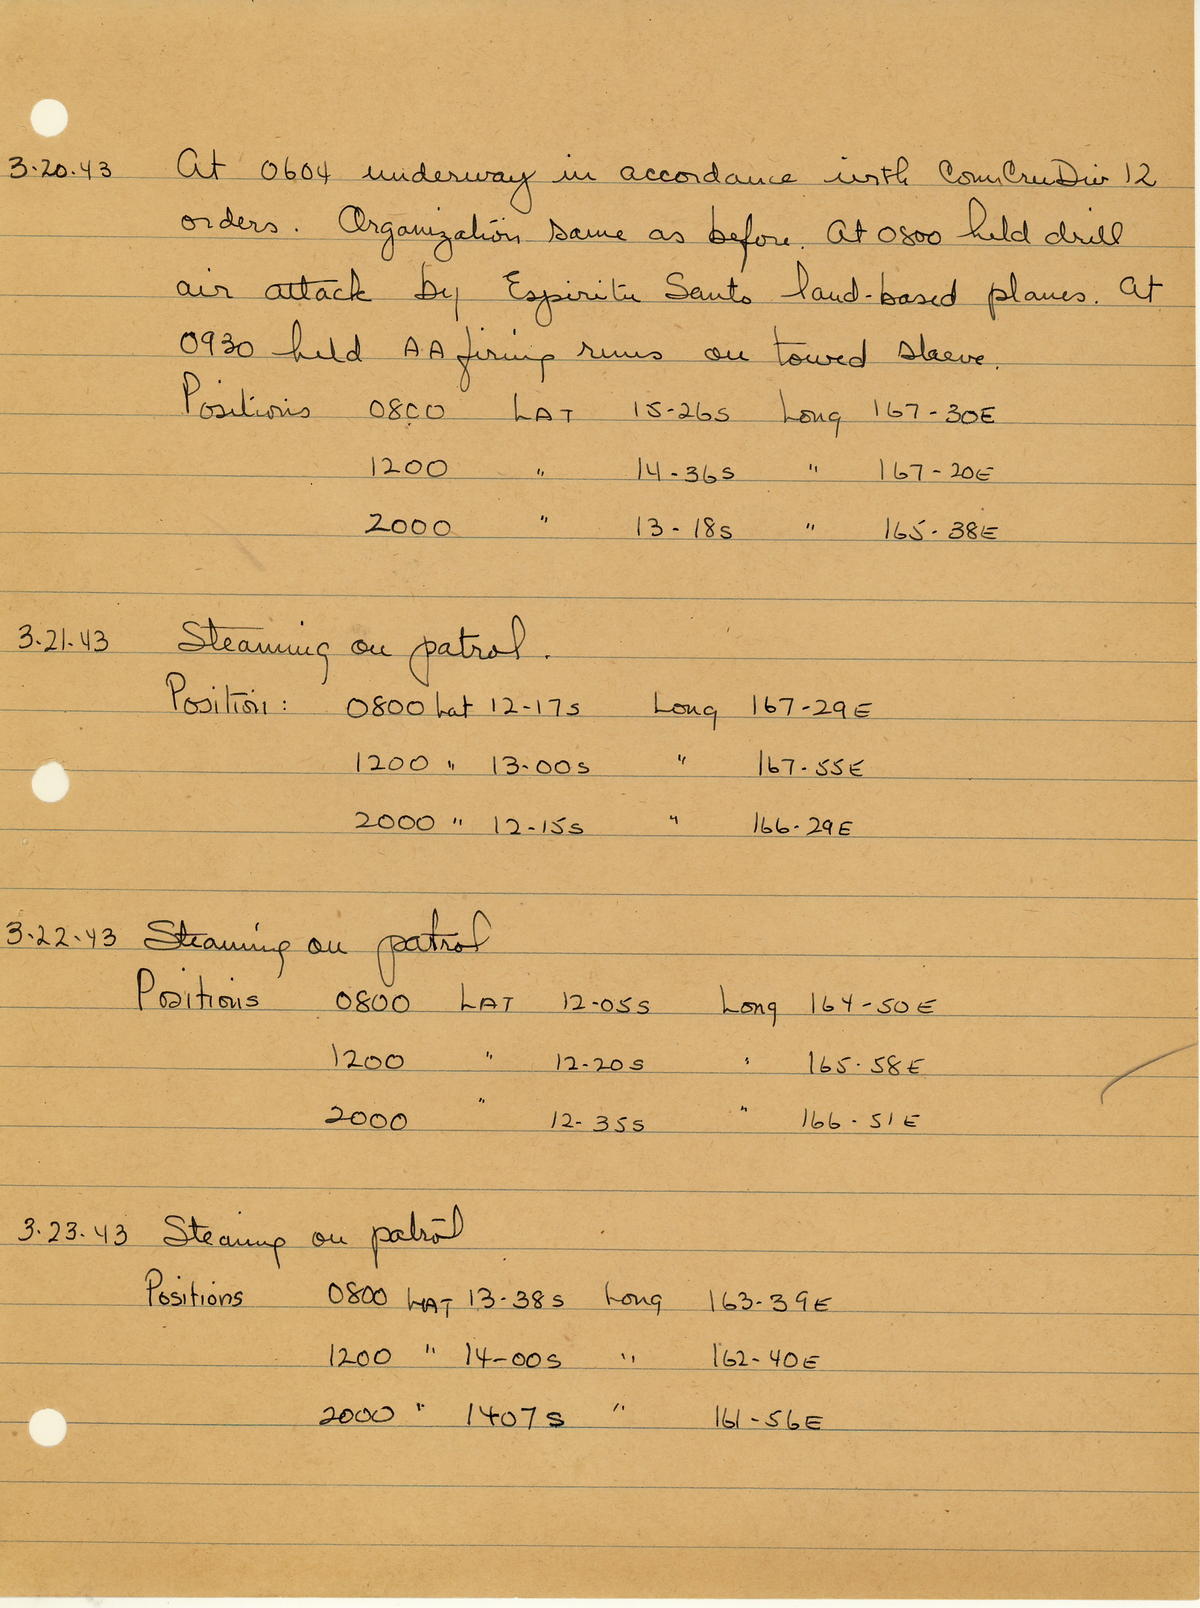 3-20-43 At 0604 underway in accordance with ComCruDiv 12
orders. Organization same as before. At 0800 held drill
air attack by Espiritu Santo land-based planes. At
0930 held AA firing runs on towed sleeve.
Positions 0800 LAT 15-26S Long 167-30E
1200 " 14-36S " 167-20E
2000 " 13-18S " 165-38E
3-21-43 Steaming on patrol.
Position: 0800 Lat 12-17S Long 167-29E
1200 " 13-00S " 167-55E
2000 " 12-15S " 166-29E
3-22-43 Steaming on patrol
Positions 0800 LAT 12-05S Long 164-50E
1200 " 12-20S " 165-58E
2000 " 12-35S " 166-51E
3-23-43 Steaming on patrol
Positions 0800 LAT 13-38S Long 163-39E
1200 " 14-00S " 162-40E
2000 " 1407S " 161-56E